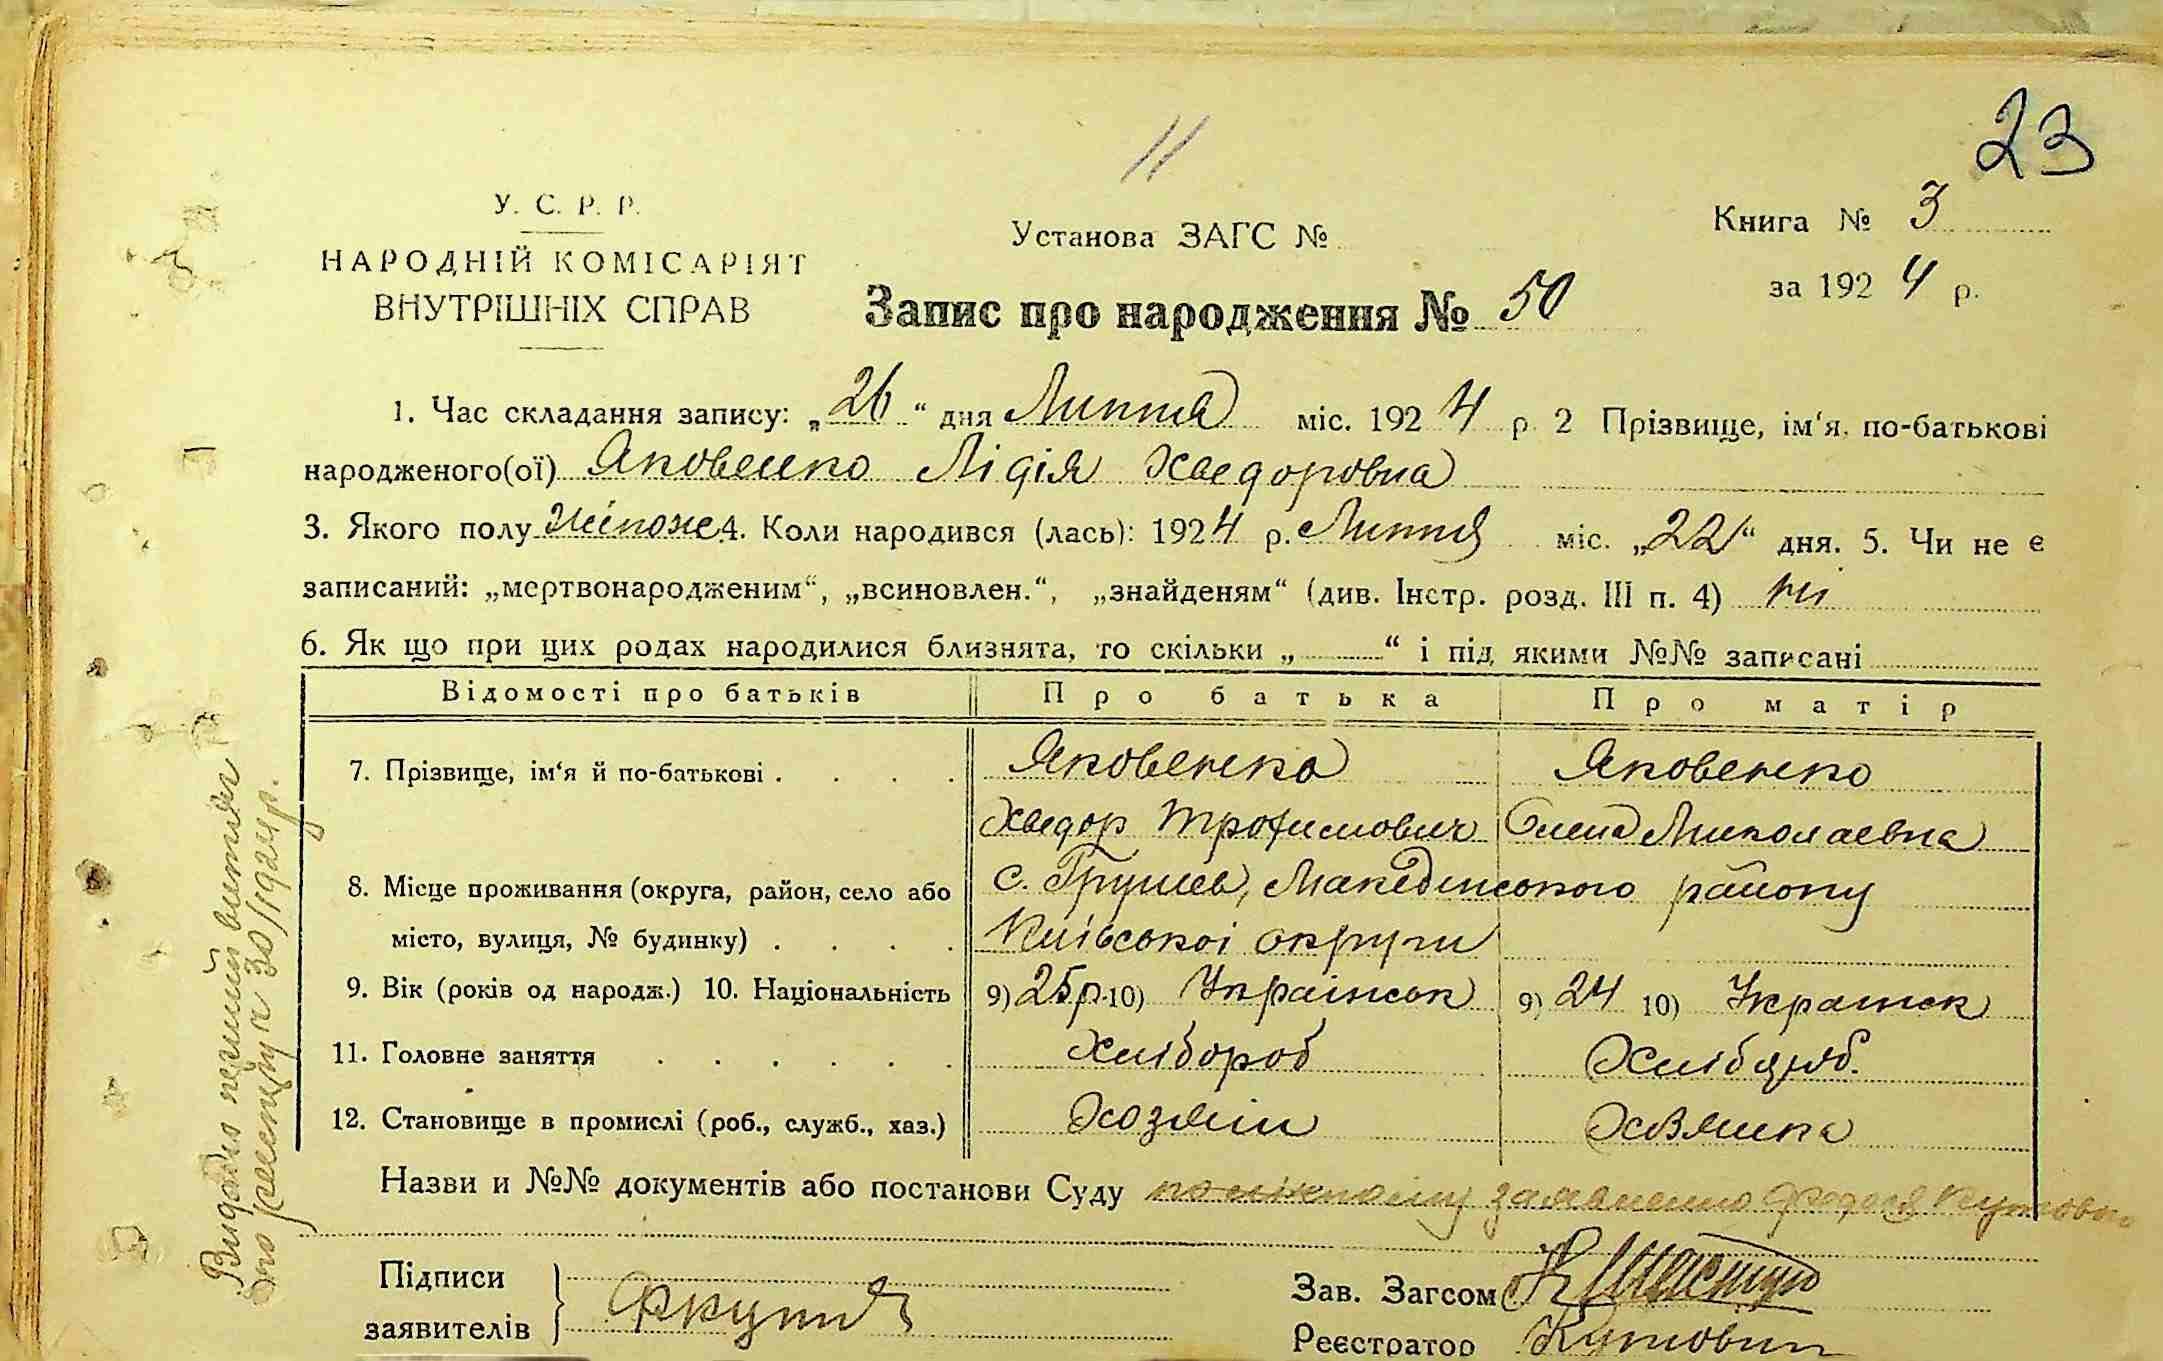 23
11
У. С. Р. Р.
НАРОДНІЙ КОМІСАРІЯТ
ВНУТРІШНІХ СПРАВ
Установа ЗАГС №
Книга № 3
за 1924 р.
Запис про народження № 50
1. Час складання запису: „26“ дня Липня міс. 1924 р 2 Прізвище, ім‘я. по-батькові
народженого(ої) Яковенко Лідія Хведоровна
3. Якого полу 4. Коли народився (лась): 1924 р. Липня міс. „22“ дня. 5. Чи не є
записаний: „мертвонародженим“, „всиновлен.“, „знайденям“ (див. Інстр. розд. III п. 4) ні
6. Як що при цих родах народилися близнята, то скільки „ “ і під якими №№ записані
Відомості про батьків Про батька Про матір
7. Прізвище, ім‘я й по-батькові . . . . Яковенко Яковенко
Хведор Трофимович Олена Миколаевна
8. Місце проживання (округа, район, село або с. Грушев, Македонського району
місто, вулиця, № будинку) . . . . Київської округи
9. Вік (років од народж.) 10. Національність 9) 25р. 10) Українськ 9) 24 10) Украінск
11. Головне заняття . . . . . . Хлібороб Хлібороб.
12. Становище в промислі (роб., служб., хаз.) Хозяін Хозяйка
Назви и №№ документів або постанови Суду заявленню
Підписи
заявителів
Зав. Загсом
Реєстратор Кутовий
Видано перший витяг
30/I 924 р.